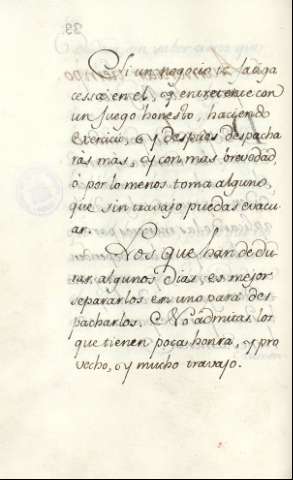 Si un negocio te fatiga
cessa en el, y entretente con
un juego honesto, haciendo
exercicio, y despues despacha
ràs mas, y con mas brevedad,
ò por lo menos toma alguno,
que sin travajo puedas evacu
ar.
Los que han de du
rar algunos dias, es mejor
separarlos en uno para des
pacharlos. No admitas los
que tienen poca honra, y pro
vecho, y mucho travajo.